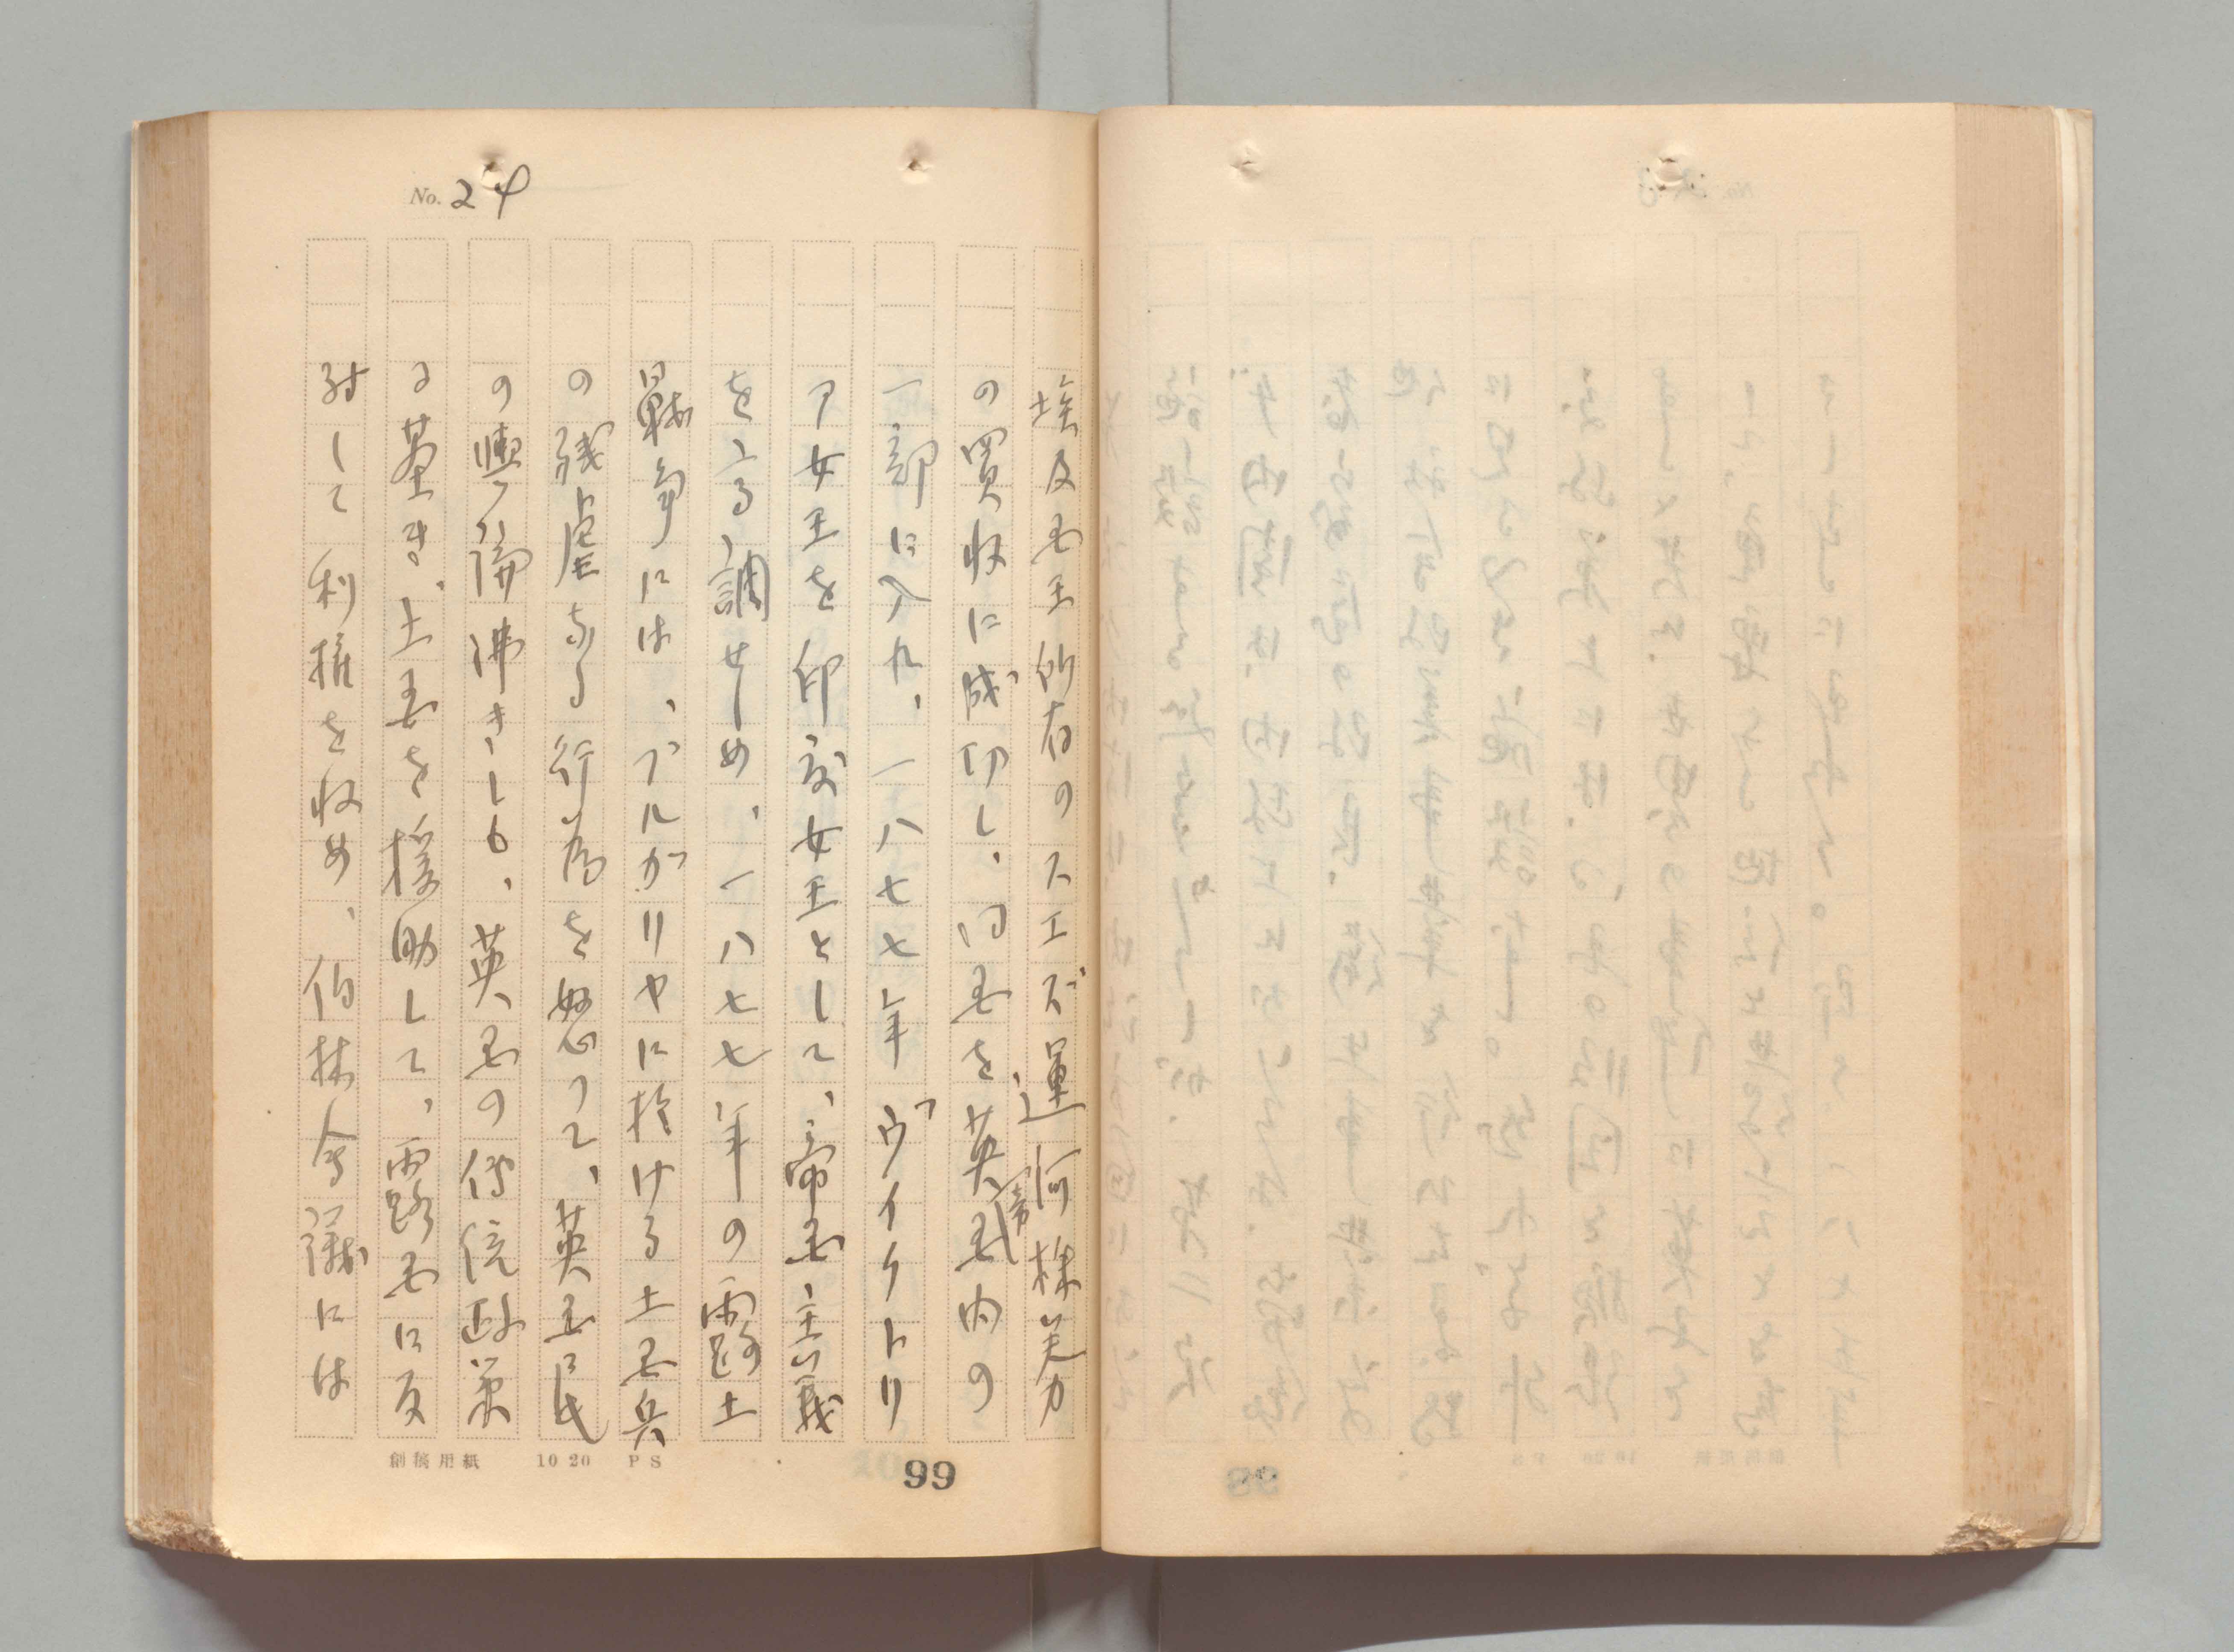 No. 24
埃及国王所有のスエズ運河株差力
の買収に成功し、同国を英国内の
一部に入れ、一八七七年ヴィクトリ
ア女王を印度女王として、帝国主義
を高調せしめ、一八七七年の露土
戦争には、ブルガリヤに於ける土国兵
の残虐なる行為を怒つて、英国民
の輿論沸きしも、英国の伝統政策
に基き、土国を援助して、露国に反
対して利権を収め、伯林会議には
創稿用紙 10 20 PS
99